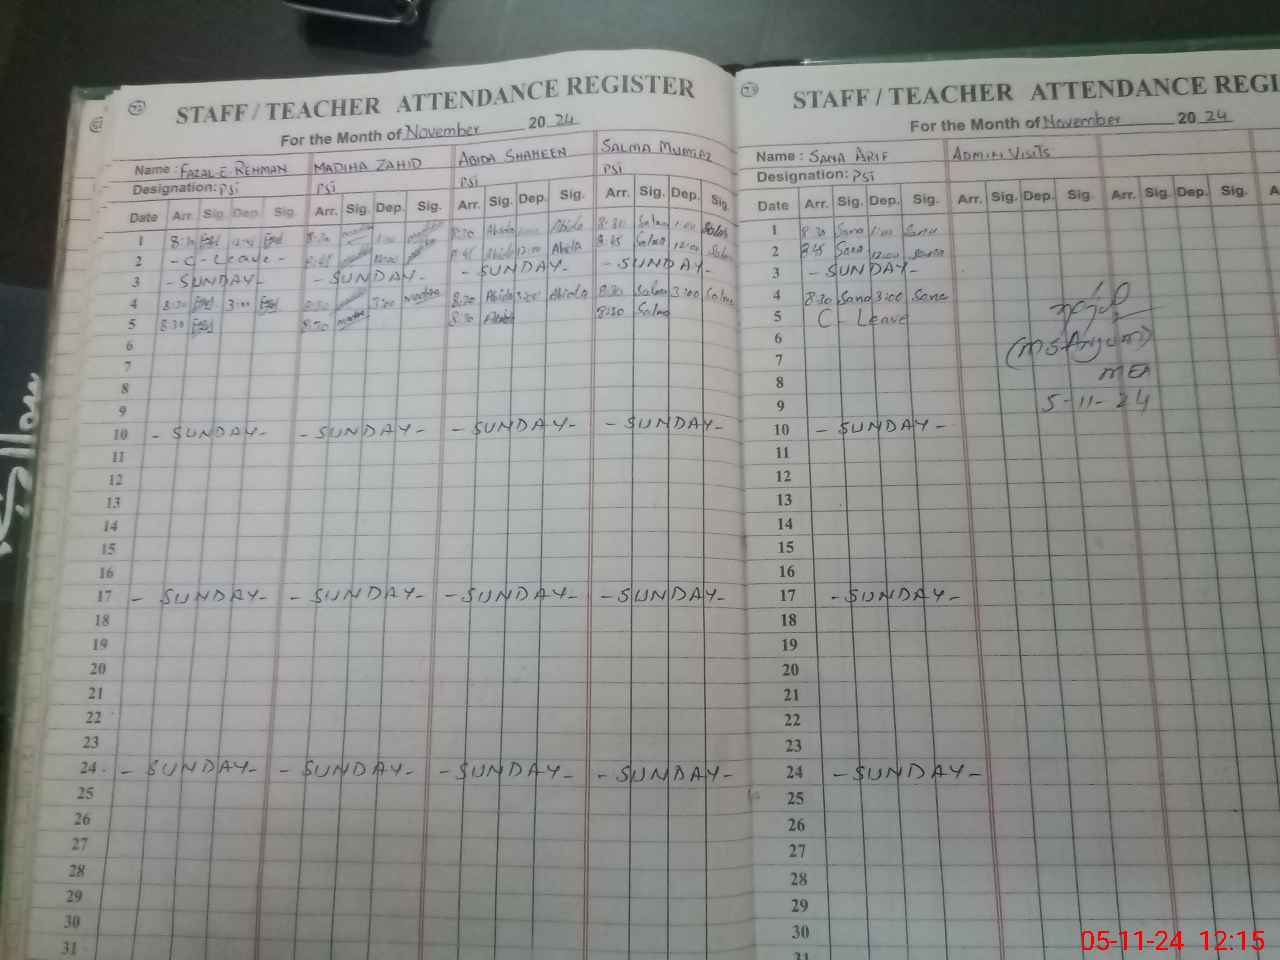 STAFF / TEACHER ATTENDANCE REGISTER
For the Month of November 20 24
Name : FAZAL-E-REHMAN MADIHA ZAHID ABIDA SHAHEEN SALMA MUMTAZ
Designation: PSI PSI PSI PSI
Date Arr. Sig. Dep. Sig. Arr. Sig. Dep. Sig. Arr. Sig. Dep. Sig. Arr. Sig. Dep. Sig.
1 8:30 8:30 8:30 Abida Abida 8:30 Salma Salma
2 - C - Leave - 8:45 12:00 8:45 Abida 12:00 Abida 8:45 Salma 12:00 Salma
3 - SUNDAY - - SUNDAY - - SUNDAY - - SUNDAY -
4 8:30 3:00 8:30 3:00 8:30 Abida 3:00 Abida 8:30 Salma 3:00 Salma
5 8:30 8:30 8:30 Abida 8:30 Salma
6
7
8
9
10 - SUNDAY - - SUNDAY - - SUNDAY - - SUNDAY -
11
12
13
14
15
16
17 - SUNDAY - - SUNDAY - - SUNDAY - - SUNDAY -
18
19
20
21
22
23
24 - SUNDAY - - SUNDAY - - SUNDAY - - SUNDAY -
25
26
27
28
29
30
31
STAFF / TEACHER ATTENDANCE REGI
For the Month of November 20 24
Name : SANA ARIF ADMIN VISITS
Designation: PSI
Date Arr. Sig. Dep. Sig. Arr. Sig. Dep. Sig. Arr. Sig. Dep. Sig. A
1 8:30 Sana 1:00 Sana
2 8:45 Sana 12:00 Sana
3 - SUNDAY -
4 8:30 Sana 3:00 Sana
5 C - Leave
6
7
8 MEA
9 5-11-24
10 - SUNDAY -
11
12
13
14
15
16
17 - SUNDAY -
18
19
20
21
22
23
24 - SUNDAY -
25
26
27
28
29
30
31
05-11-24 12:15